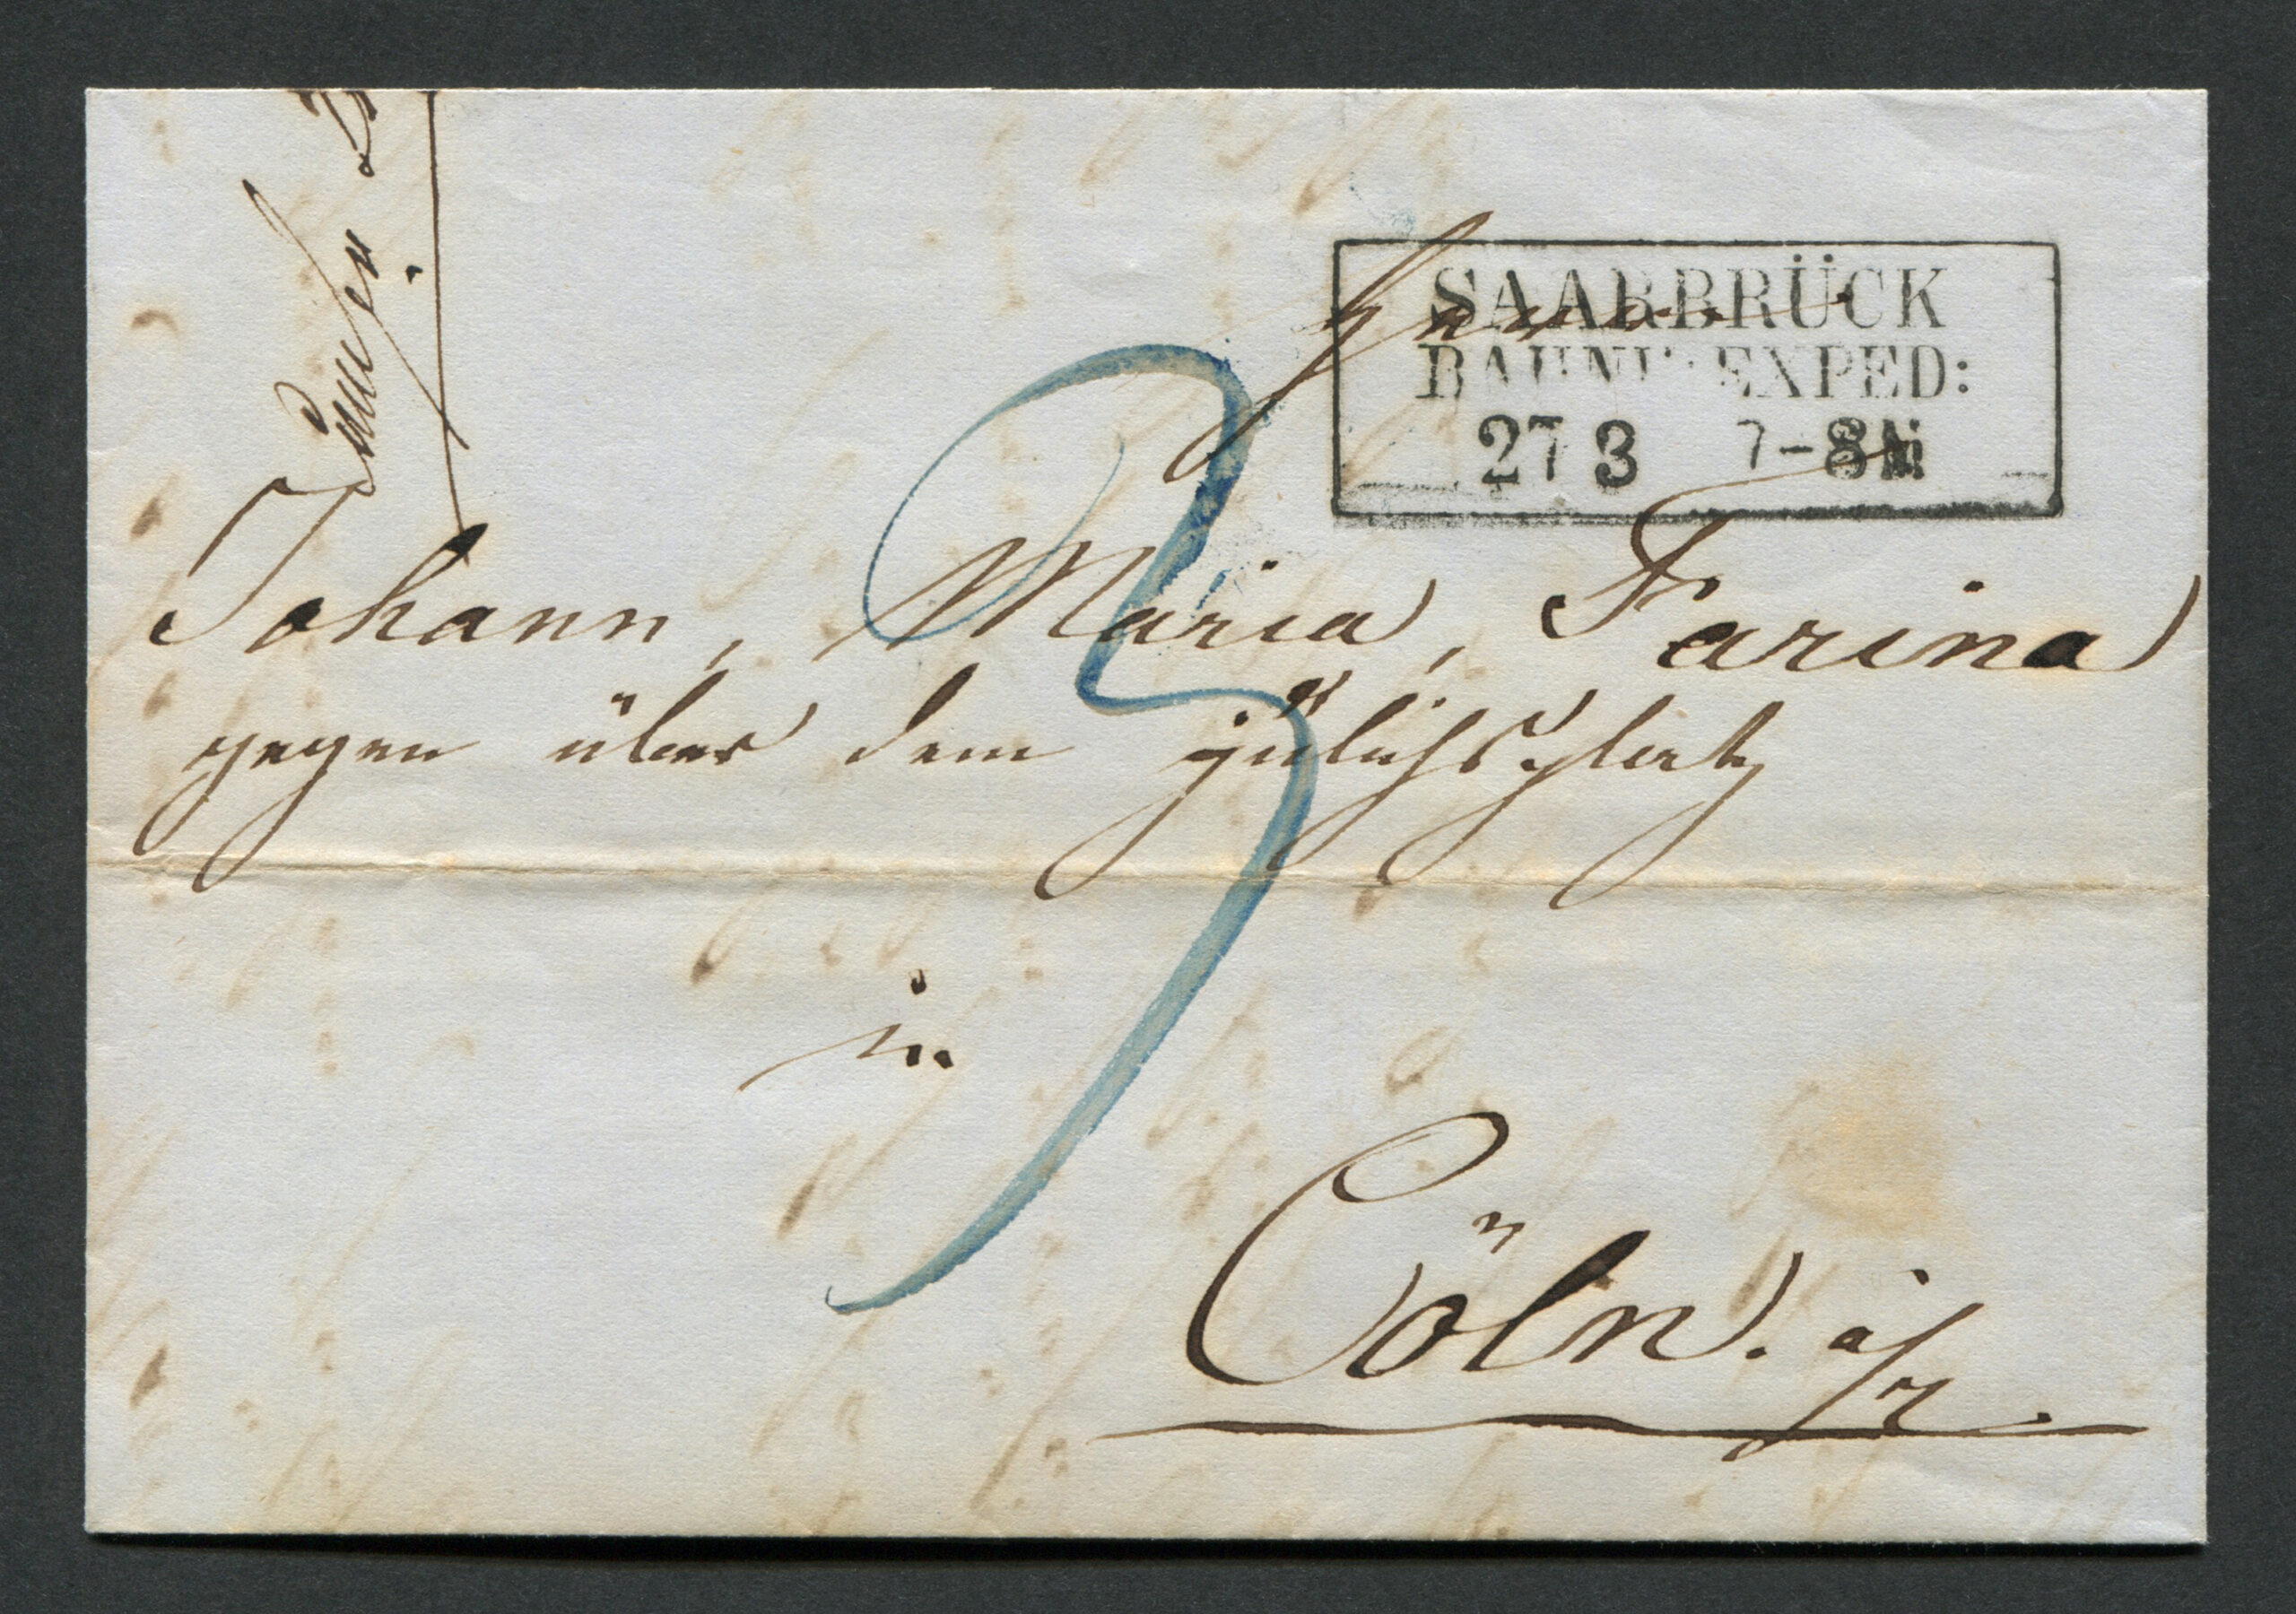 SAARBRÜCK
BAHNH: EXPED:
27 3 7-8 N
Johann, Maria, Farina
gegen über dem Jülichsplatz
3
in
Cöln. a/R.